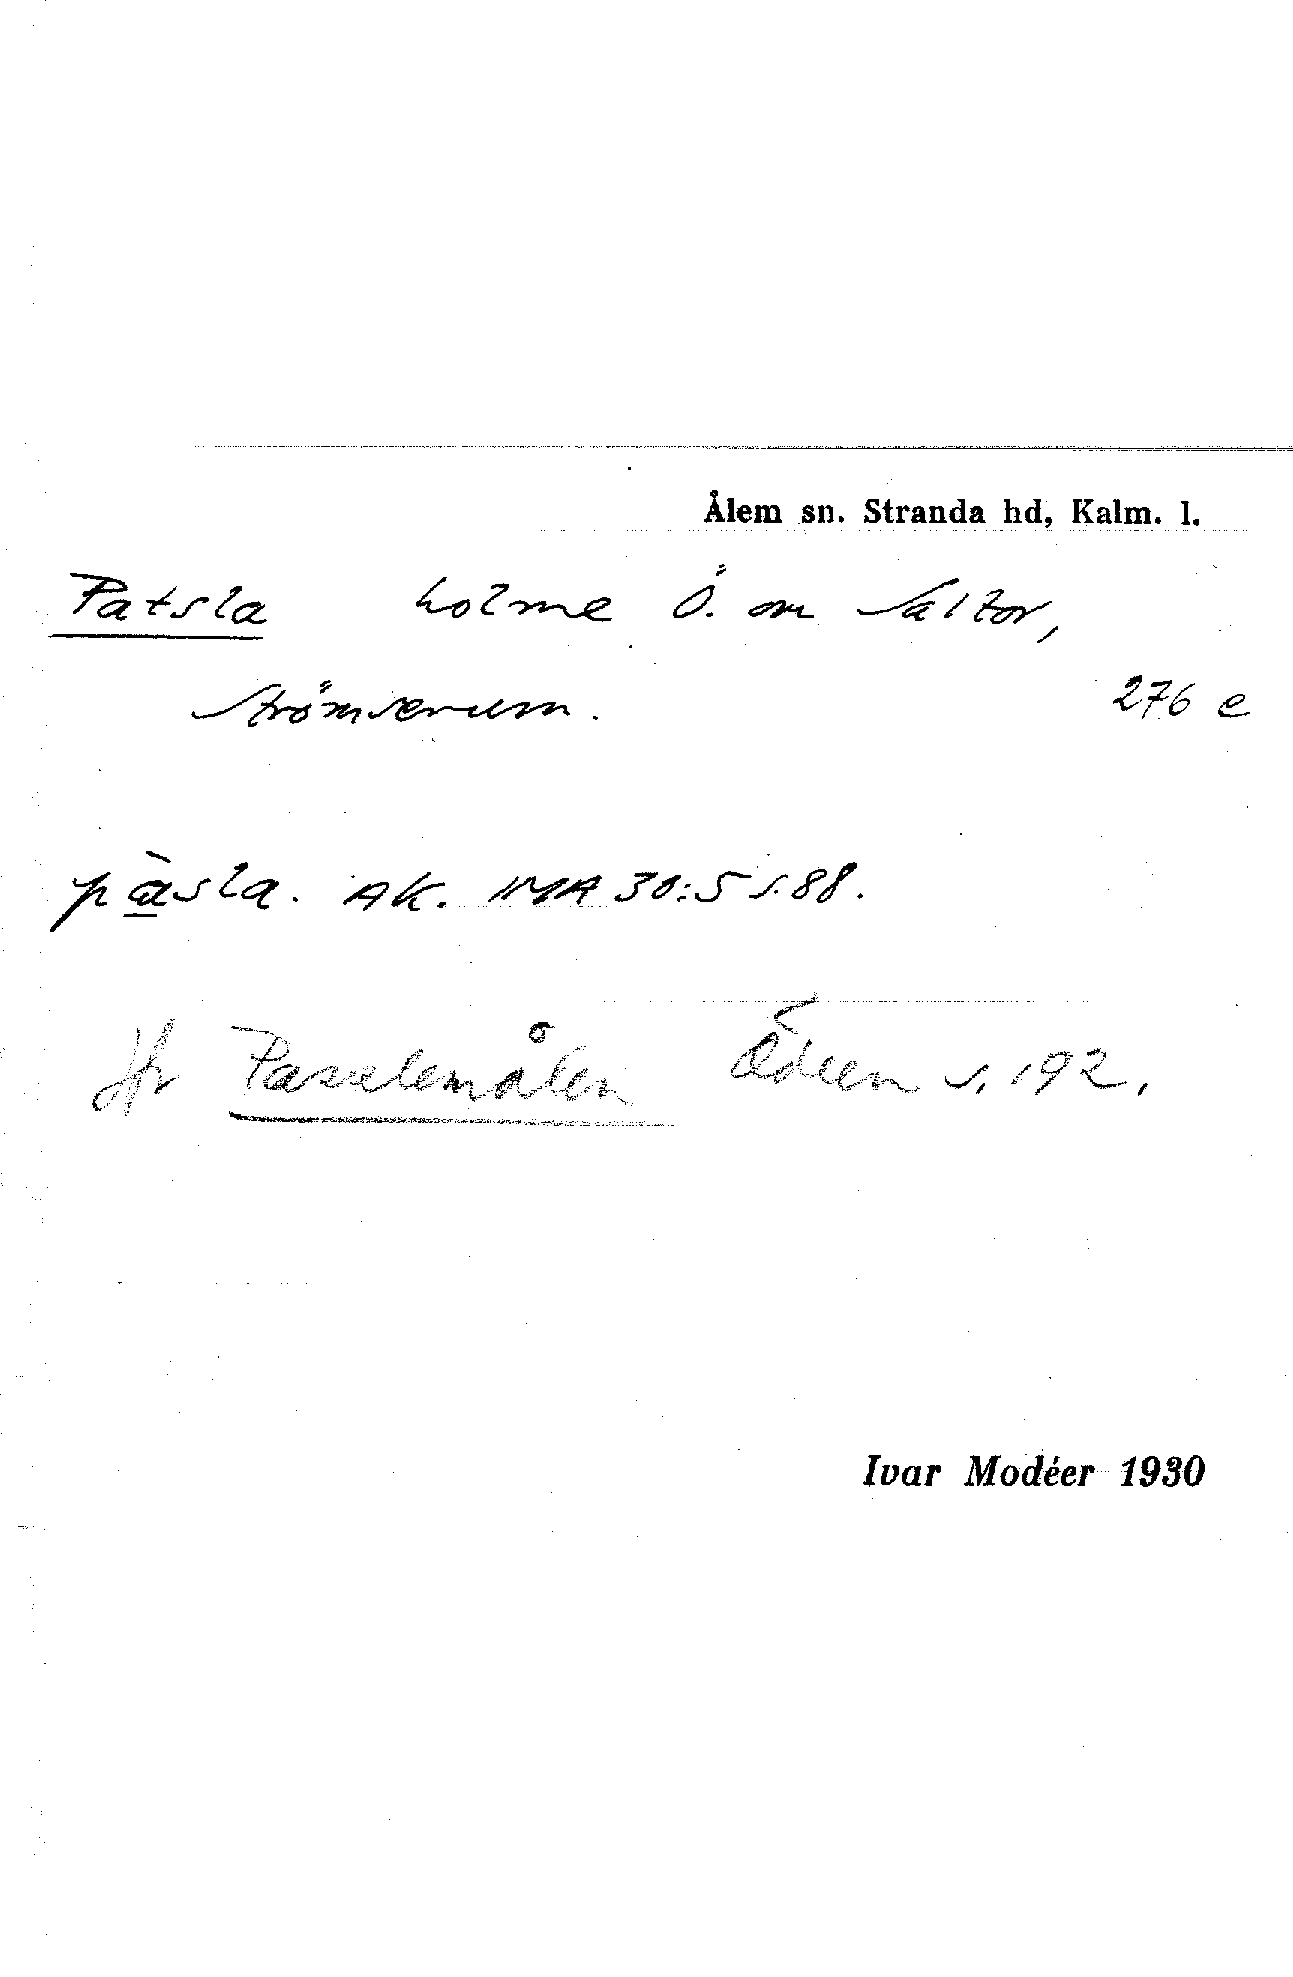 Ålem sn. Stranda hd, Kalm. l.
Patsla holme Ö. om Saltor,
Strömserum. 276 e
pàsla. AK. IMA 30:5 s. 88.
Jfr Paselemålen Ödeen s. 192.
Ivar Modéer 1930